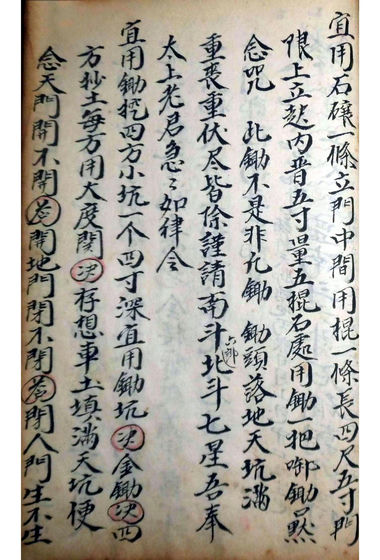 宜用石磉一條立門中間用棍一條長四尺五寸門
限上立起内普五寸量五棍石處用鋤一把啣鋤默
念咒 此鋤不是非凡鋤 鋤頭落地天坑滿
重喪重伏尽皆除謹請南斗六郎北斗七星吾奉
太上老君急〻如律令
宜用鋤挖四方小坑一个四寸深宜用鋤坑决金鋤决四
方抄土每方用大度開决存想車土填滿天坑便
念天門開不開荅開地門閉不閉荅閉人門生不生